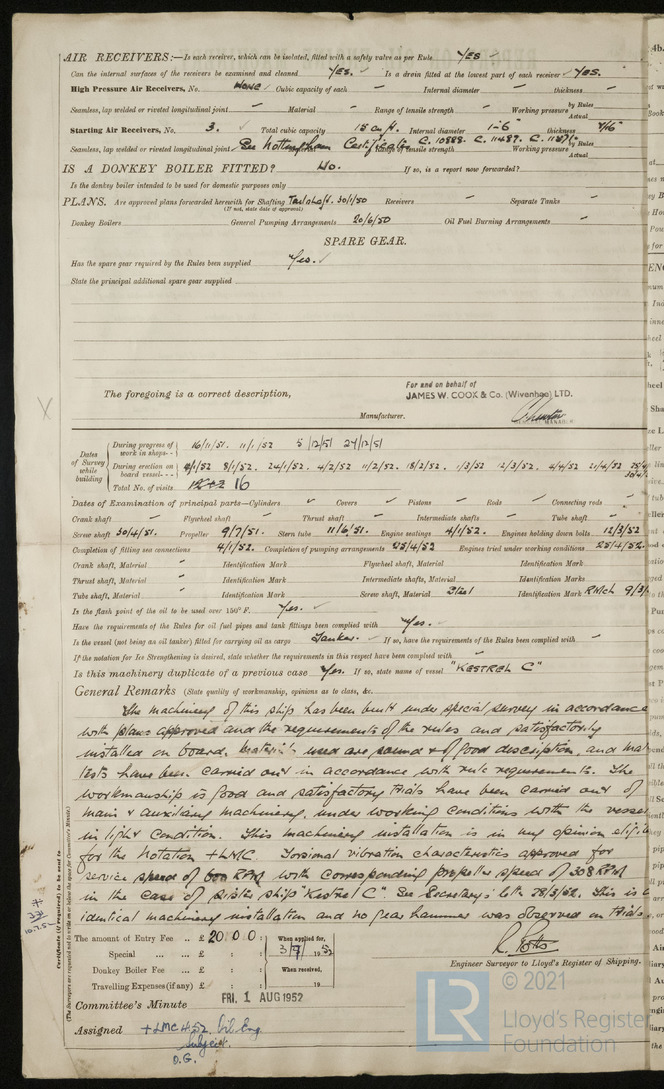 AIR RECEIVERS:—Is each receiver, which can be isolated, fitted with a safety valve as per Rule YES
Can the internal surfaces of the receivers be examined and cleaned YES. Is a drain fitted at the lowest part of each receiver YES.
High Pressure Air Receivers, No. NONE Cubic capacity of each Internal diameter thickness
Seamless, lap welded or riveted longitudinal joint Material Range of tensile strength Working pressure by Rules Actual
Starting Air Receivers, No. 3. Total cubic capacity 15 cu ft. Internal diameter 1-6" thickness
Seamless, lap welded or riveted longitudinal joint See Nottingham Certificate C. 10888. C. 11487. Range of tensile strength Working pressure by Rules Actual
IS A DONKEY BOILER FITTED? No. If so, is a report now forwarded?
Is the donkey boiler intended to be used for domestic purposes only
PLANS. Are approved plans forwarded herewith for Shafting Tailshaft. 30/1/50 Receivers Separate Tanks
(If not, state date of approval)
Donkey Boilers General Pumping Arrangements 20/6/50 Oil Fuel Burning Arrangements
SPARE GEAR.
Has the spare gear required by the Rules been supplied Yes.
State the principal additional spare gear supplied
The foregoing is a correct description,
For and on behalf of
JAMES W. COOK & Co. (Wivenhoe) LTD.
Manufacturer.
MANAGER
Dates of Survey while building
During progress of work in shops - - 16/11/51. 11/1/52 5/12/51 27/12/51
During erection on board vessel - - - 4/1/52 8/1/52. 24/1/52. 4/2/52 11/2/52. 18/2/52. 1/3/52 12/3/52. 4/4/52 21/4/52
Total No. of visits 16
Dates of Examination of principal parts—Cylinders Covers Pistons Rods Connecting rods
Crank shaft Flywheel shaft Thrust shaft Intermediate shafts Tube shaft
Screw shaft 30/4/51. Propeller 9/7/51. Stern tube 11/6/51. Engine seatings 4/1/52. Engines holding down bolts 12/3/52
Completion of fitting sea connections 4/1/52. Completion of pumping arrangements 25/4/52 Engines tried under working conditions 25/4/52.
Crank shaft, Material Identification Mark Flywheel shaft, Material Identification Mark
Thrust shaft, Material Identification Mark Intermediate shafts, Material Identification Marks
Tube shaft, Material Identification Mark Screw shaft, Material Steel Identification Mark
Is the flash point of the oil to be used over 150° F. Yes.
Have the requirements of the Rules for oil fuel pipes and tank fittings been complied with Yes.
Is the vessel (not being an oil tanker) fitted for carrying oil as cargo Tanker. If so, have the requirements of the Rules been complied with
If the notation for Ice Strengthening is desired, state whether the requirements in this respect have been complied with
Is this machinery duplicate of a previous case Yes. If so, state name of vessel "KESTREL C"
General Remarks (State quality of workmanship, opinions as to class, &c.
The machinery of this ship has been built under special survey in accordance
with plans approved and the requirements of the rules and satisfactorily
installed on board. Materials used are sound & of good description, and
tests have been carried out in accordance with rule requirements. The
workmanship is good and satisfactory trials have been carried out of
main & auxiliary machinery, under working conditions with the vessel
in light condition. This machinery installation is in my opinion
for the notation +LMC. Torsional vibration characteristics approved for
service speed of 600 RPM with corresponding propeller speed of 308 RPM
in the case of sister ship "Kestrel C" See Secretary's letter 28/3/52. This is
identical machinery installation and no gear hammer was observed on trials
Certificate (if required) to be sent to
(The Surveyors are requested not to write on or below the space for Committee's Minute.)
The amount of Entry Fee .. £ 20 : 0 : 0 : When applied for,
Special ... ... £ : : 19 52
Donkey Boiler Fee ... £ : : When received,
Travelling Expenses (if any) £ : : 19
R. Potts
Engineer Surveyor to Lloyd's Register of Shipping.
Committee's Minute FRI. 1 AUG 1952
Assigned +LMC 4.52. Oil Eng.
Subject.
O.G.
LR
© 2021
Lloyd's Register
Foundation